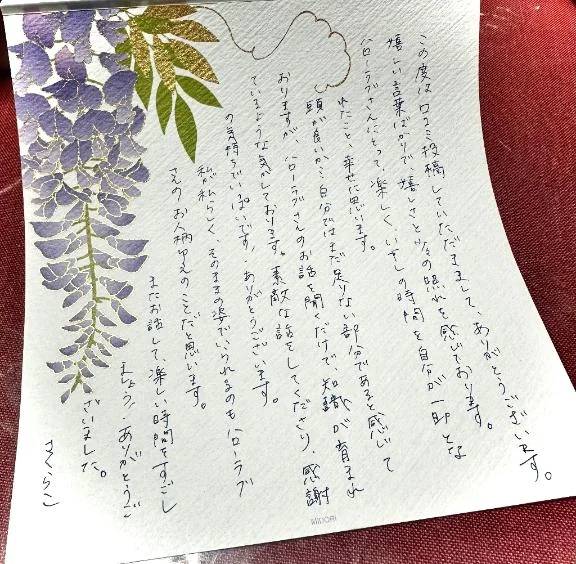 この度は口コミ投稿していただきまして、ありがとうございます。
嬉しい言葉ばかりで、嬉しさと少々の照れを感じております。
ハローラブさんにとって、楽しく、いやしの時間を自分が一部とな
れたこと、幸せに思います。
頭が良いか…自分ではまだ足りない部分であると感じて
おりますが、ハローラブさんのお話を聞くだけで、知識が育まれ
ているような気がしております。素敵な話をしてくださり、感謝
の気持ちでいっぱいです。ありがとうございます。
私が私らしく、そのままの姿でいられるのもハローラブ
さんのお人柄ゆえのことだと思います。
またお話しして、楽しい時間をすごし
ましょう!ありがとうご
ざいました。
さくらこ
MIDORI